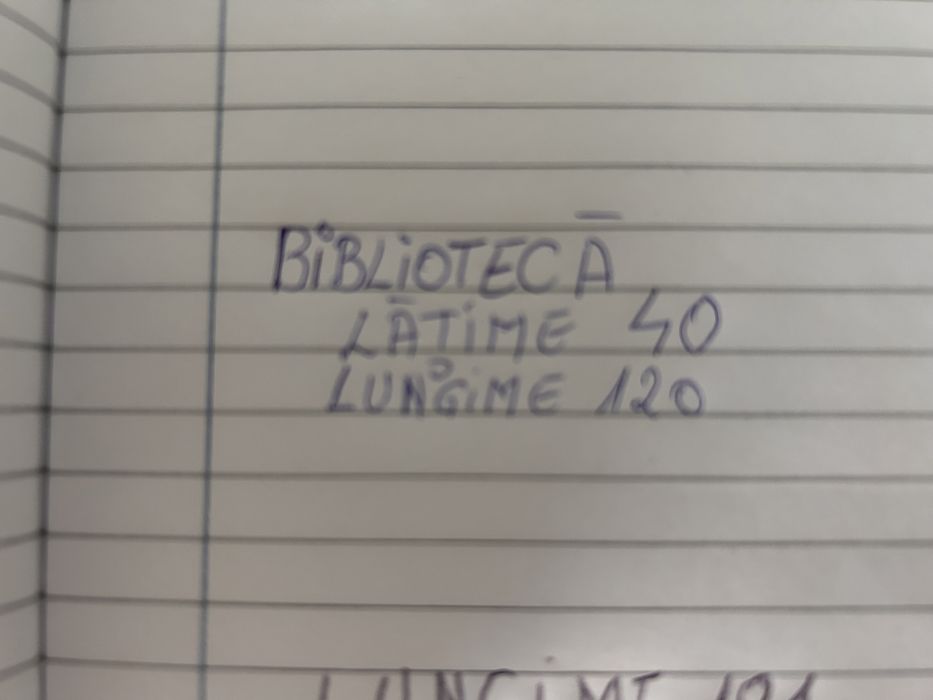 BIBLIOTECĀ
LĀTIME 40
LUNGIME 120